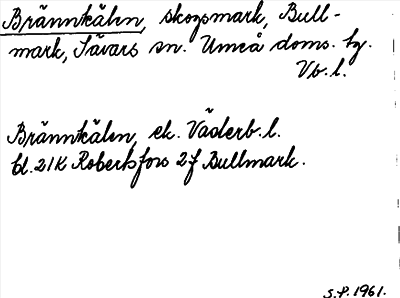 Brännkäln, skogsmark, Bull-
mark, Sävars sn. Umeå doms. hg.
Vb. l.
Brännkäln, ek. Väderb. l.
bl. 21K Robertsfors 2f Bullmark.
S.P. 1961.